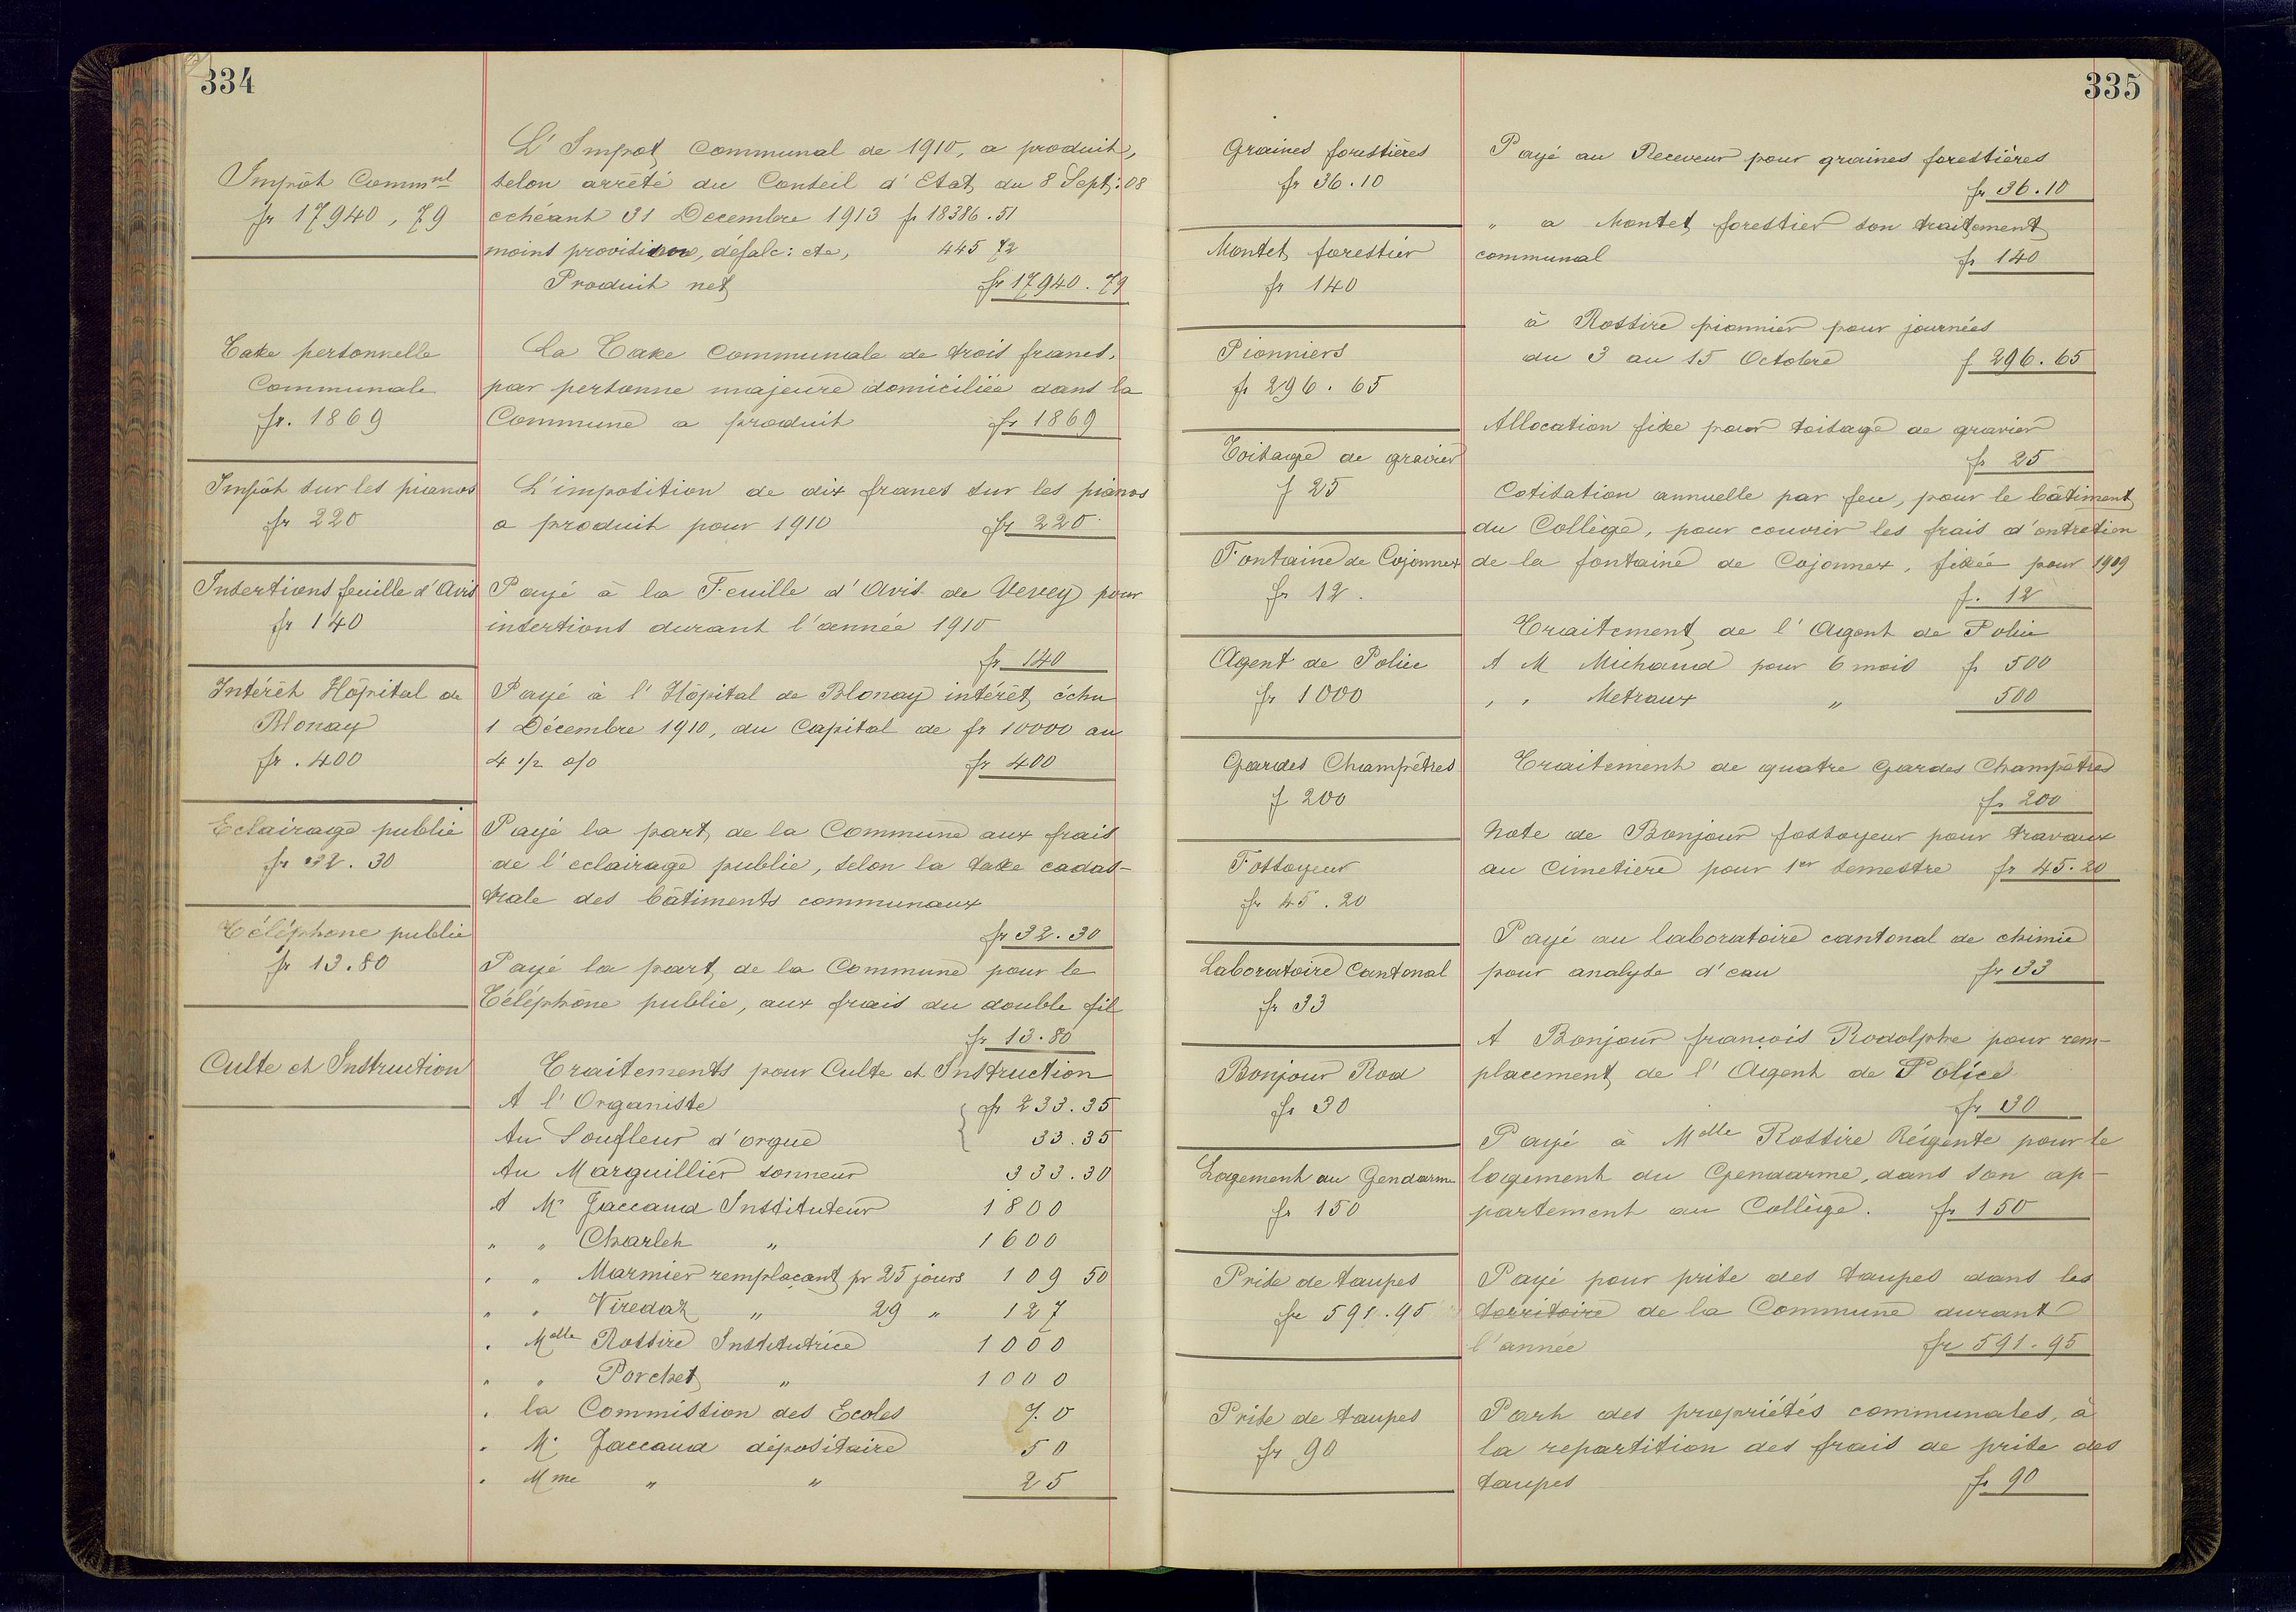 334
L'Impot Communal de 1910, a produit,
Impôt Commnl
selon arrêté du Conseil d'Etat, du 8 Sept: 08
fr 17940,79
echéant 31 Decembre 1913 fr 18386.51
moins provision, défalc: etc, 445 72
Produit net fr 17940.79
Taxe personnelle
Communale
fr. 1869
La Taxe Communale de trois francs,
par personne majeure domiciliée dans la
Commune a produit fr 1869
Impôt sur les pianos
fr 220
L'imposition de dix francs sur les pianos
a produit pour 1910 fr 220
Insertions feuille d'Avis
fr 140
Payé à la Feuille d'Avis de Vevey pour
insertions durant l'année 1910
fr 140
Intérêt Hôpital de
Blonay
fr. 400
Payé à l'Hôpital de Blonay intérêt échu
1 Décembre 1910, du Capital de fr 10000 au
4 1/2 o/o fr 400
Eclairage public
fr 32.30
Payé la part de la Commune aux frais
de l'eclairage public, selon la taxe cadas-
trale des bâtiments communaux
fr 32.30
Téléphone public
fr 13.80
Payé la part de la Commune pour le
Téléphone public, aux frais du double fil
fr 13.80
Culte et Instruction
Traitements pour Culte et Instruction
A l'Organiste fr 233.35
Au Soufleur d'orgue 33.35
Au Marguillier sonneur 333.30
A Mr Jaccaud Instituteur 1800
" " Charleh " 1600
" " Marmier remplaçant pr 25 jours 109 50
" " Viredaz " 29 " 127
" Melle Rossire Institutrice 1000
" " Porchet " 1000
" la Commission des Ecoles 70
" M. Jaccaud dépositaire 50
" Mme " " 25
335
Graines forestières
fr 36.10
Payé au Receveur pour graines forestières
fr 36.10
Montet forestier
fr 140
" a Montet forestier son traitement
communal fr 140
Pionniers
fr 296.65
à Rossire pionnier pour journées
du 3 au 15 Octobre f 296.65
Toisage de gravier
f 25
Allocation fixe pour toisage de gravier
fr 25
Fontaine de Cojonnex
fr 12.
Cotisation annuelle par feu, pour le bâtiment
du Collège, pour couvrir les frais d'entretien
de la fontaine de Cojonnex, fixée pour 1909
f. 12
Agent de Police
fr 1000
Traitement de l'Agent de Police
A M Michaud pour 6 mois fr 500
" " Metraux " 500
Gardes Champêtres
f 200
Traitement de quatre Gardes Champêtres
fr 200
Fossoyeur
fr 45.20
Note de Bonjour fossoyeur pour travaux
au Cimetière pour 1er semestre fr 45.20
Laboratoire Cantonal
fr 33
Payé au laboratoire cantonal de chimie
pour analyse d'eau fr 33
Bonjour Rod
fr 30
A Bonjour françois Rodolphe pour rem-
placement de l'Agent de Police
fr 30
Logement au Gendarme
fr 150
Payé à Melle Rossire Régente pour le
logement du Gendarme, dans son ap-
partement au Collège. fr 150
Prise de taupes
fr 591.95
Payé pour prise des taupes dans les
territoire de la Commune durant
l'année fr 591.95
Prise de taupes
fr 90
Part des propriétés communales, à
la repartition des frais de prise des
taupes fr 90